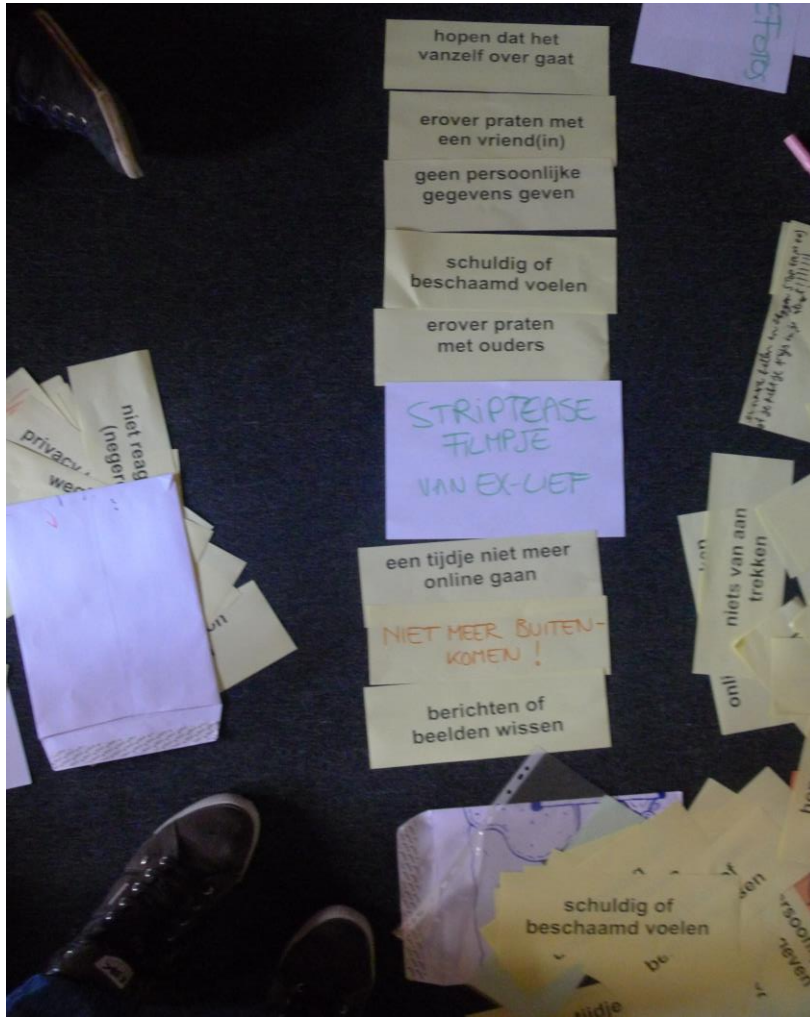 hopen dat het
vanzelf over gaat
erover praten met
een vriend(in)
geen persoonlijke
gegevens geven
schuldig of
beschaamd voelen
erover praten
met ouders
STRIPTEASE
FILMPJE
VAN EX-LIEF
een tijdje niet meer
online gaan
NIET MEER BUITEN-
KOMEN !
berichten of
beelden wissen
niet reag
(neger
privacy
weg
niets van aan
trekken
onli
schuldig of
beschaamd voelen
be
tijdje